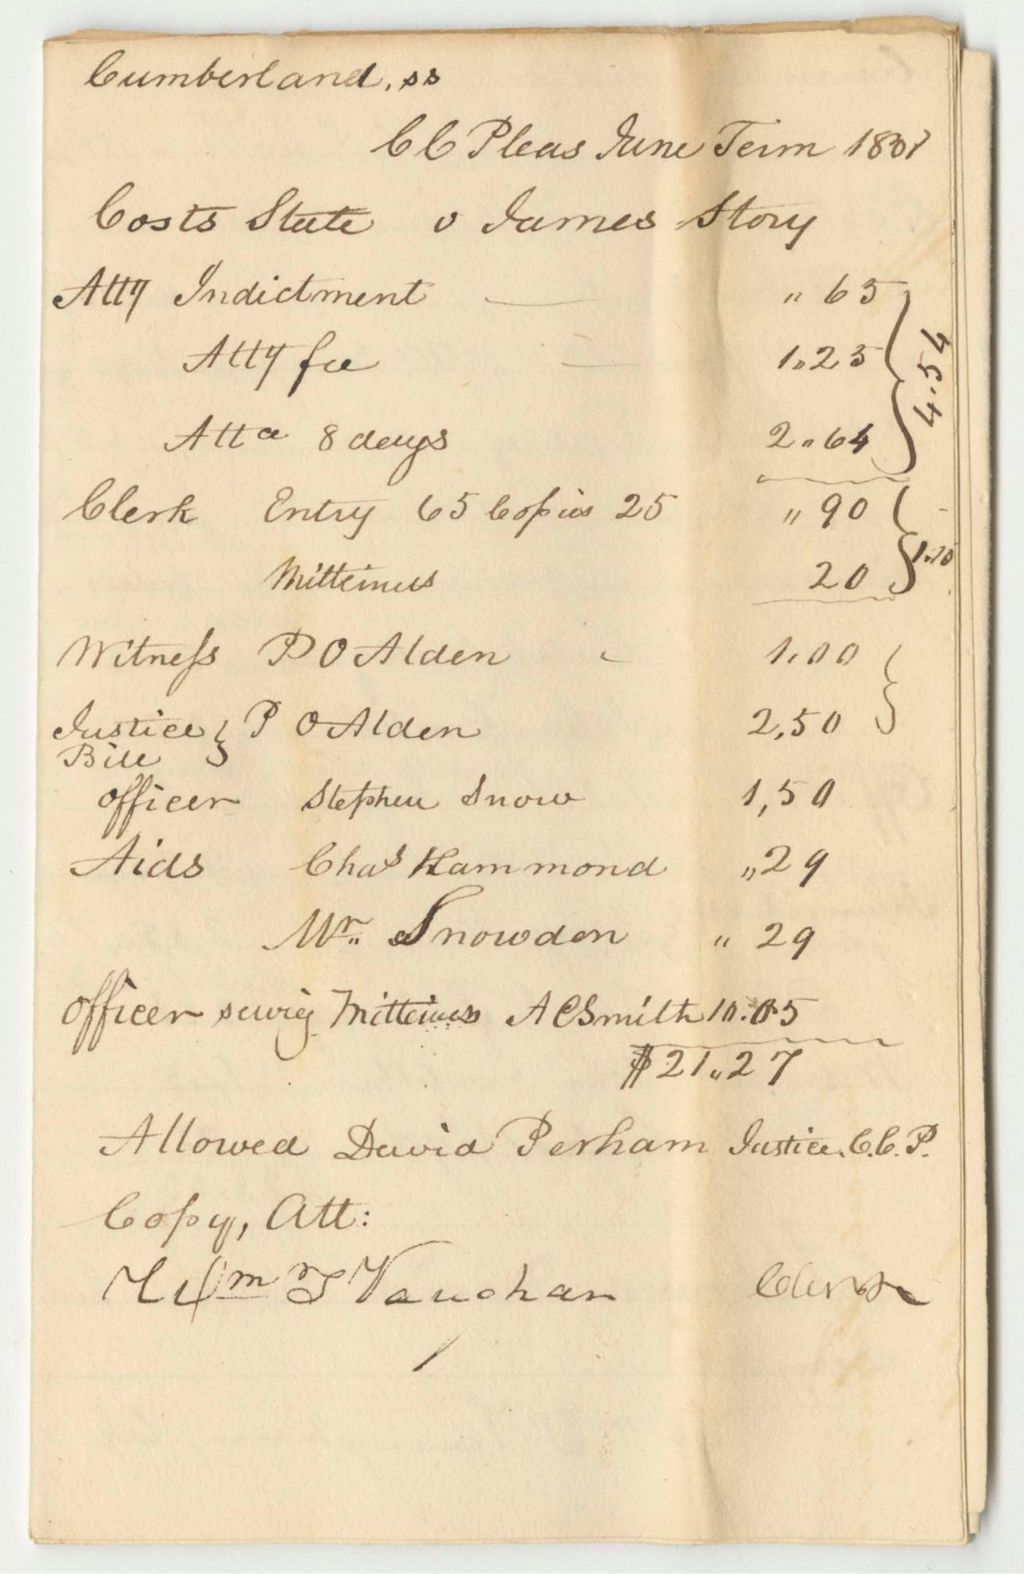 Cumberland, ss
C C Pleas June Term 1831
Costs State v James Story
Atty Indictment " 65
Atty fee 1.25
Atta 8 days 2.64
4.54
Clerk Entry 65 Copies 25 " 90
Mittimus 20
1.10
Witness P O Alden 1.00
Justice P O Alden 2,50
Bill
Officer Stephen Snow 1,50
Aids Chas Hammond " 29
Mr. Snowdon " 29
Officer serving Mittimus A C Smith 10.05
$21.27
Allowed David Perham Justice. C. C. P.
Copy, Att:
Wm T Vaughan Clerk